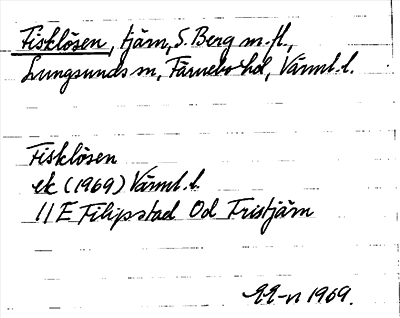 Fisklösen, tjärn, S. Berg m. fl.,
Lungsunds sn, Färnebo hd, Värml. l.
Fisklösen
ek (1969) Värml. l.
11 E Filipstad Od Tristjärn
1969.